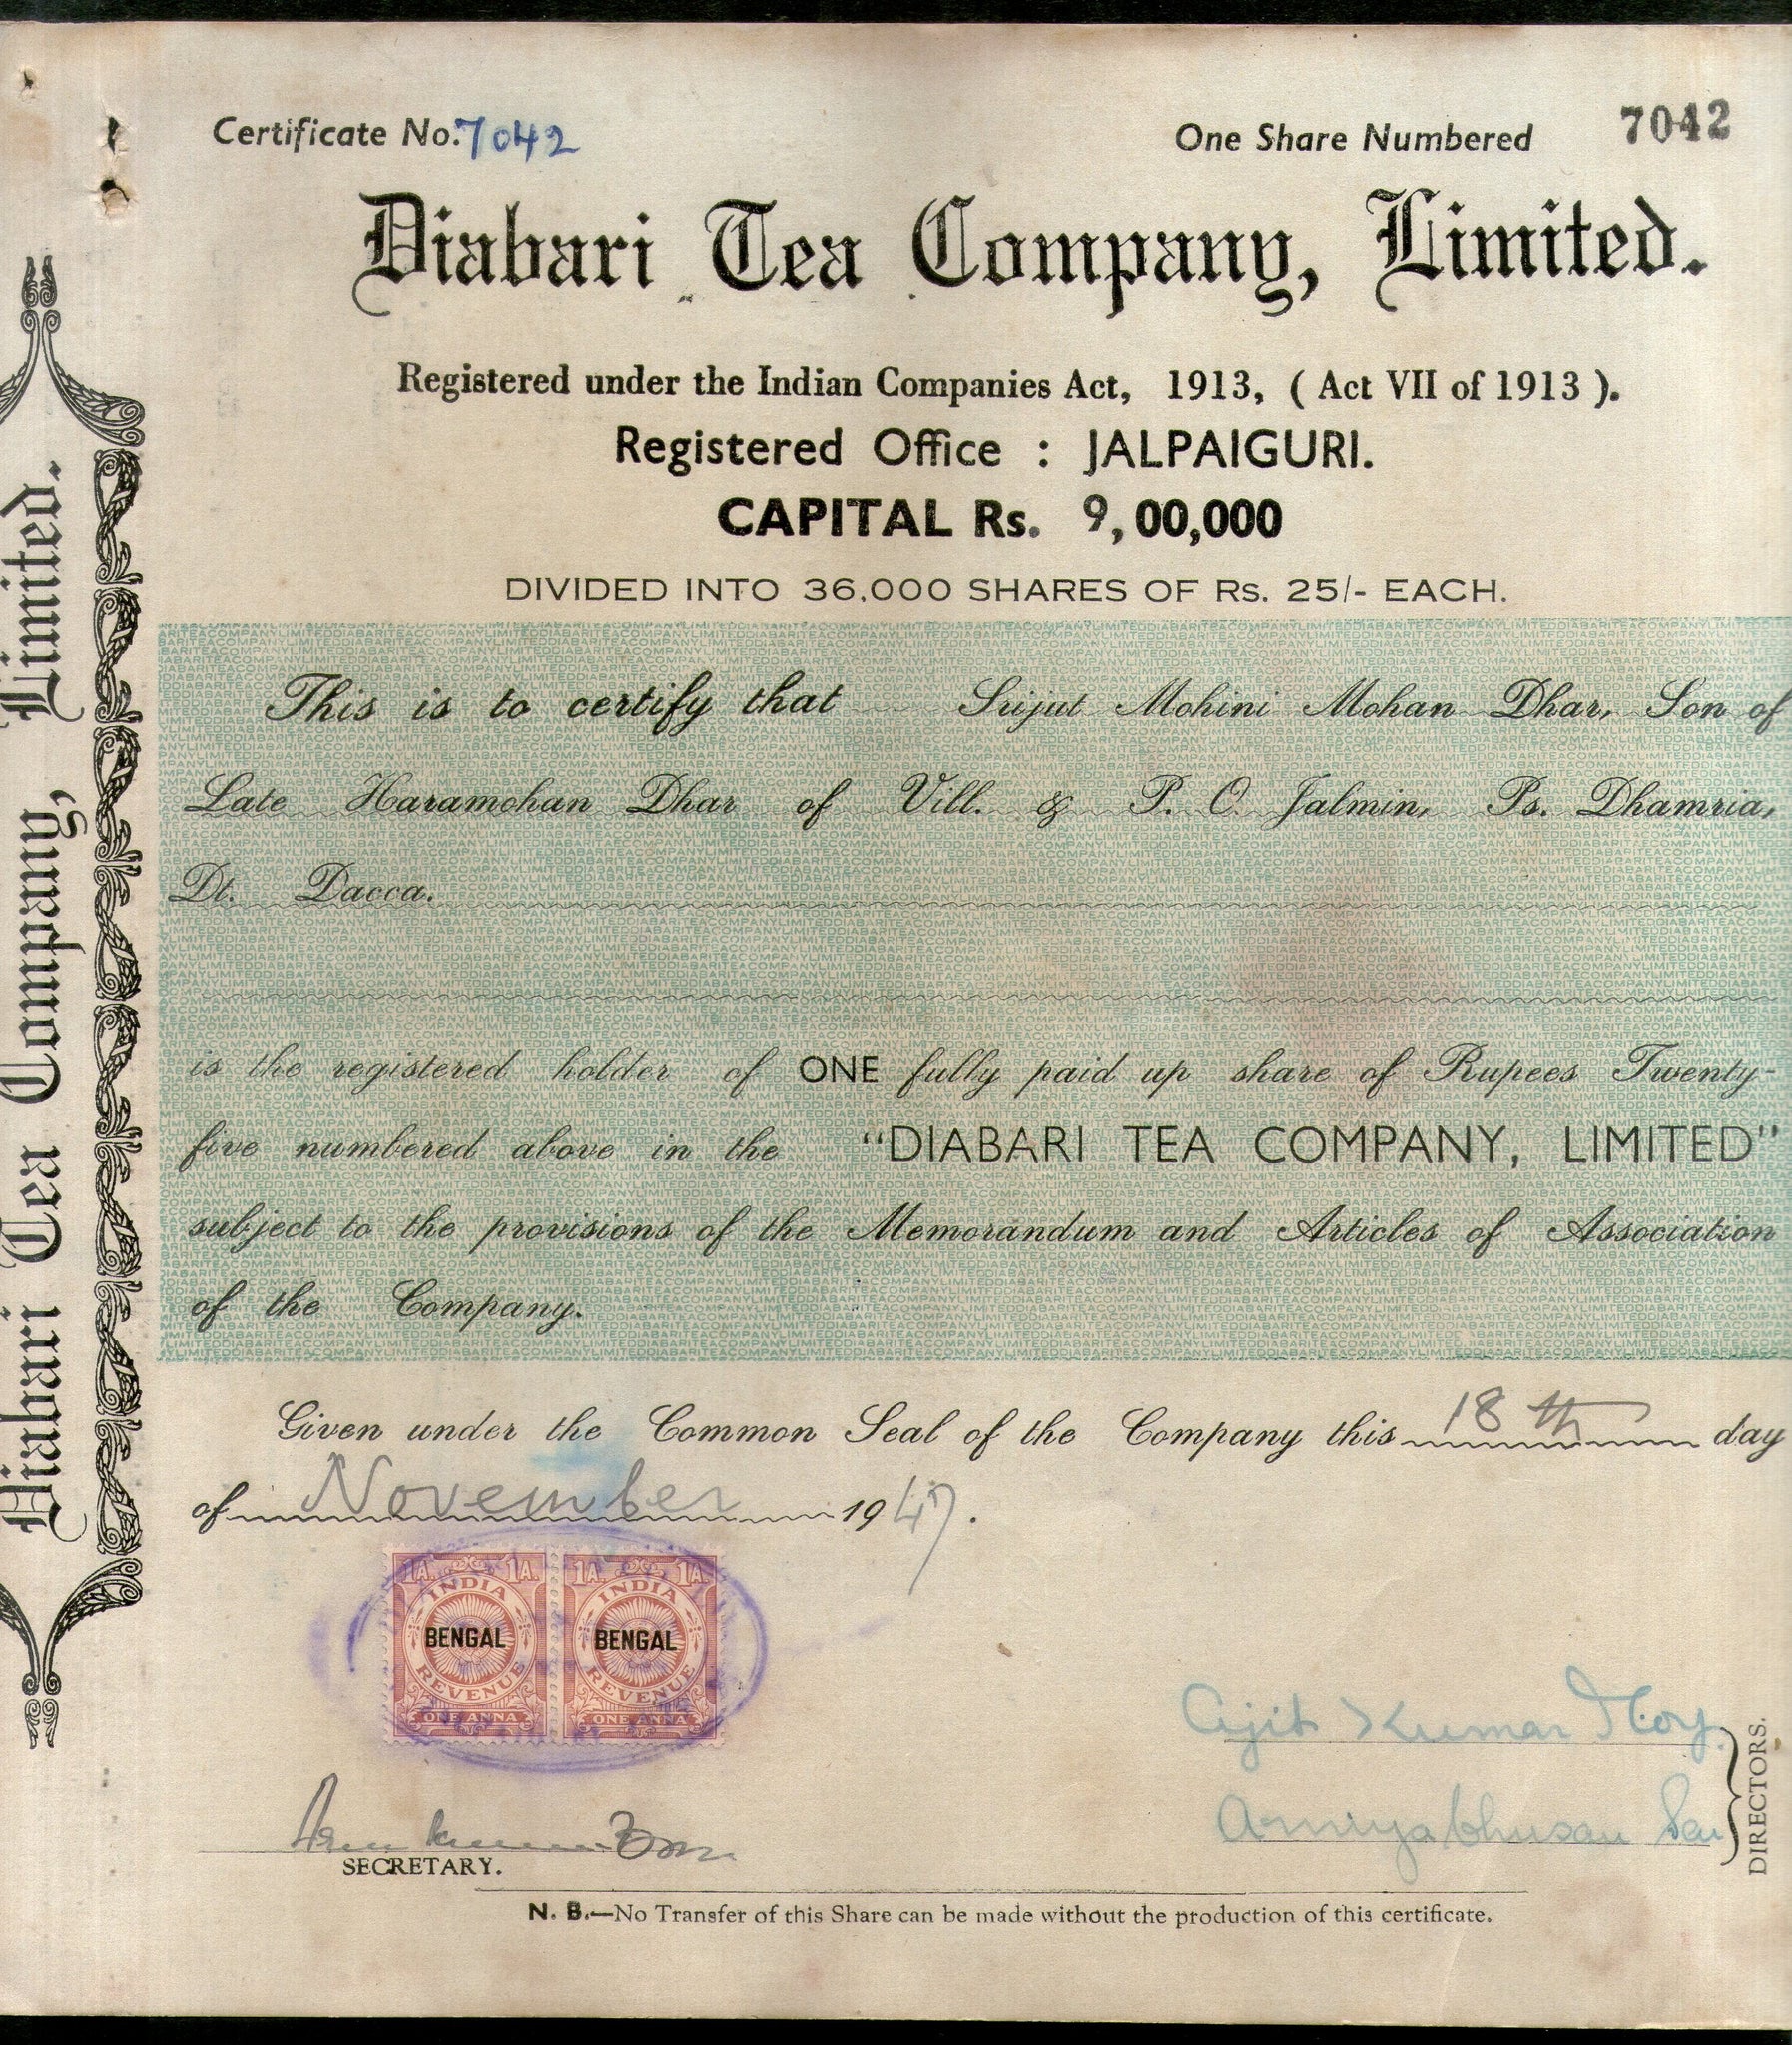 Certificate No. 7042
One Share Numbered 7042
Diabari Tea Company, Limited.
Registered under the Indian Companies Act, 1913, ( Act VII of 1913 ).
Registered Office : JALPAIGURI.
CAPITAL Rs. 9,00,000
DIVIDED INTO 36,000 SHARES OF Rs. 25/- EACH.
This is to certify that Srijut Mohini Mohan Dhar, Son of
Late Haramohan Dhar of Vill. & P. O. Jalmin, Ps. Dhamria,
Dt. Dacca.
is the registered holder of ONE fully paid up share of Rupees Twenty-
five numbered above in the "DIABARI TEA COMPANY, LIMITED"
subject to the provisions of the Memorandum and Articles of Association
of the Company.
Given under the Common Seal of the Company this 18th day
of November 1947.
1A. 1A. 1A. 1A.
INDIA INDIA
BENGAL BENGAL
REVENUE REVENUE
ONE ANNA ONE ANNA
Ajit Kumar
Amiya bhusan Sen
DIRECTORS.
SECRETARY.
N. B.—No Transfer of this Share can be made without the production of this certificate.
Diabari Tea Company, Limited.